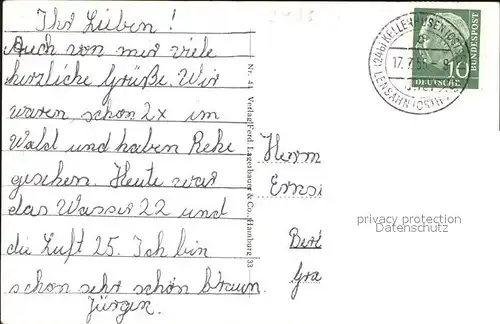 Ihr Lieben!
Auch von mir viele
herzliche Grüße. Wir
waren schon 2x im
Wald und haben Rehe
gesehen. Heute war
das Wasser 22 und
die Luft 25. Ich bin
schon sehr schön braun.
Jürgen.
Nr. 44 Verlag Ferd. Lagerbauer & Co., Hamburg 33
(24b) KELLENHUSEN (OSTS
17.7.5
LENSAHN (OSTH
DEUTSCHE
BUNDESPOST
10
Herrn
Erns
privacy protection
Datenschutz
Berl
Gra